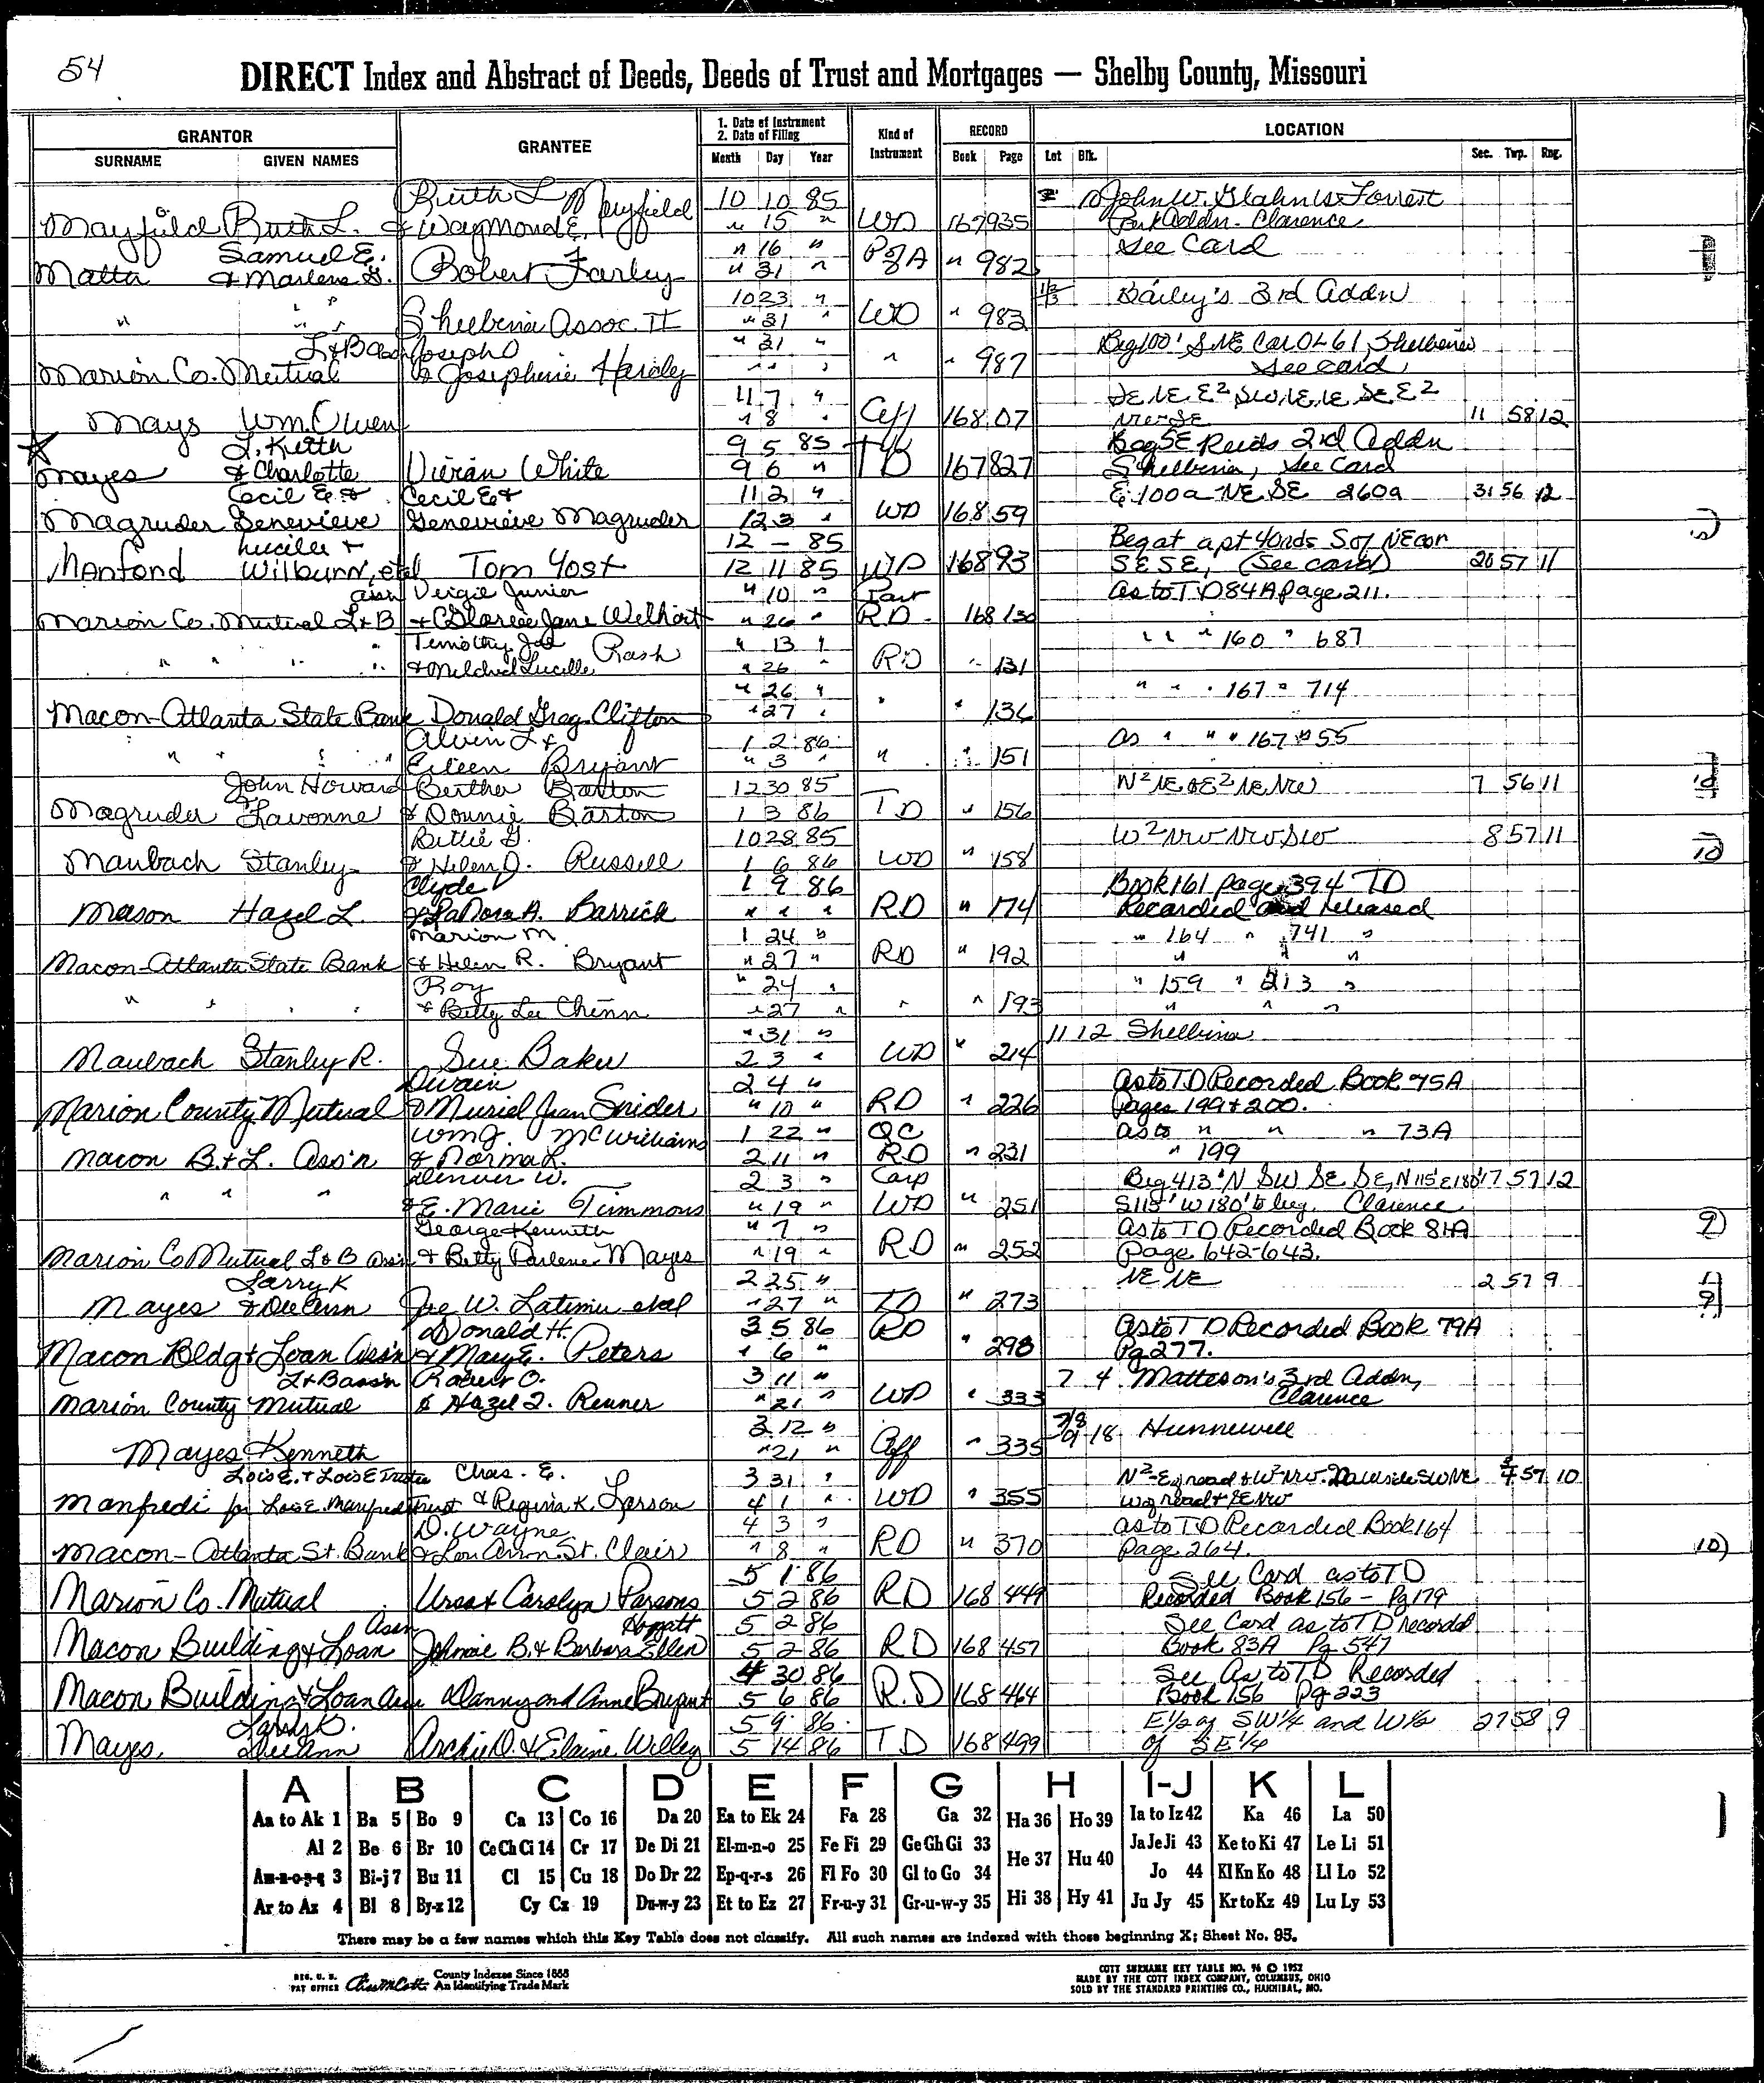 54
DIRECT Index and Abstract of Deeds, Deeds of Trust and Mortgages — Shelby County, Missouri
GRANTOR
SURNAME GIVEN NAMES
GRANTEE
1. Date of Instrument
2. Date of Filing
Month Day Year
Kind of Instrument
RECORD
Book Page
LOCATION
Lot Blk. Sec. Twp. Rng.
Ruth L Mayfield 10 10 85 John W. Glahn's Forrest
Mayfield Ruth L. & Waymond E. " 15 " WD 167 935 Park Addn. Clarence
Samuel E. " 16 " See Card
Matta & Marlene G. Robert Farley " 31 " P of A " 982
" " " 10 23 " Bailey's 3rd Addn
Shelbina Assoc. II " 31 " WD " 983
L & B Assn Joseph O " 31 " Beg 100' S NE Cor OL 61, Shelbina
Marion Co. Mutual & Josephine Hardy " " " " " 987 See card
11 7 " SE NE, E2 SW NE, NE SE E2
Mays Wm. Owen " 8 " Aff 168 07 NW SE 11 58 12
L. Keith 9 5 85 Beg SE Reids 2nd Addn
Mayes & Charlotte Vivian White 9 6 " TD 167 827 Shelbina, See Card
Cecil E & Cecil E & 11 2 " E. 100a NE SE 260a 31 56 12
Magruder Genevieve Genevieve Magruder 12 3 " WD 168 59
Lucille & 12 — 85 Beg at a pt 40rds S of NE cor
Manford Wilburn, etal Tom Yost 12 11 85 WD 168 93 SE SE, (See card) 20 57 11
assn Virgil Junior " 10 " Part As to TD 84A page 211.
Marion Co. Mutual L & B & Glorice Jane Welhort " 26 " RD 168 130
Timothy Joe Rash " 13 " " " " 160 " 687
" " " " & Mildred Lucille " 26 " RD " 131
" 26 " " " " 167 " 714
Macon-Atlanta State Bank Donald Greg Clifton " 27 " " " 136
Alvin L & 1 2 86 As " " " 167 " 55
" " " " Eileen Bryant " 3 " " " 151
John Howard Berther Barton 12 30 85 N2 NE & E2 NE NW 7 56 11
Magruder Lavonne & Donnie Barton 1 3 86 TD " 156
Billie G. 10 28 85 W2 NW NW SW 8 57 11
Maubach Stanley & Helen J. Russell 1 6 86 WD " 158
Clyde 1 9 86 Book 161 page 394 TD
Mason Hazel L. & LaNora A. Barrick " " " RD " 174 Recorded and released
Marion M. 1 24 " " 164 " 741 "
Macon-Atlanta State Bank & Helen R. Bryant " 27 " RD " 192 " " "
Roy " 24 " " 159 " 213 "
" " " " & Betty Lee Chinn " 27 " " " 193 " " "
" 31 " 11 12 Shelbina
Maubach Stanley R. Sue Baker 2 3 " WD " 214
Dwain 2 4 " As to TD Recorded Book 75A
Marion County Mutual & Muriel Jean Snider " 10 " RD " 226 Pages 199 & 200.
Wm J. McWilliams 1 22 " QC As to " " " 73A
Macon B. & L. Ass'n & Norma L. 2 11 " RD " 231 " 199
Denver W. 2 3 " Corp Beg 413' N SW SE SE, N 115' E 180' 17 57 12
" " " & E. Marie Timmons " 19 " WD " 251 S 115' W 180' to beg. Clarence
George Kenneth " 7 " As to TD Recorded Book 81A
Marion Co Mutual L & B Ass'n & Betty Darlene Mayes " 19 " RD " 252 Page 642-643.
Larry K 2 25 " NE NE 2 57 9
Mayes & DeeAnn Joe W. Latimer etal " 27 " TD " 273
Donald H. 3 5 86 As to TD Recorded Book 79A
Macon Bldg & Loan Ass'n & Mary E. Peters " 6 " RD " 298 Pg 277.
L & B ass'n Robert O. 3 11 " 7 4 Matteson's 3rd Addn,
Marion County Mutual & Hazel I. Renner " 21 " WD " 333 Clarence
3 12 " 7/8 9 18 Hunnewell
Mayes Kenneth " 21 " Aff " 335
Lois E. & Lois E Trustee Chas. E. 3 31 " 57 10
Manfredi for Lois E. Manfredi Trust & Regina K. Larson 4 1 " WD " 355 W of road & SE NW
D. Wayne 4 3 " As to TD Recorded Book 164
Macon-Atlanta St. Bank & Lou Ann St. Clair " 8 " RD " 370 Page 264.
5 1 86 See Card as to TD
Marion Co. Mutual Ursa & Carolyn Parsons 5 2 86 RD 168 449 Recorded Book 156 - Pg 179
Assn 5 2 86 See Card as to TD recorded
Macon Building & Loan Johnnie B. & Barbara Ellen 5 2 86 RD 168 457 Book 83A Pg 547
4 30 86 See As to TD Recorded
Macon Building & Loan Assn Danny and Anne Bryant 5 6 86 R.D 168 464 Book 156 Pg 223
Larry K. 5 9 86 E½ of SW¼ and W½ 27 58 9
Mayes DeeAnn Archie D. & Elaine Willey 5 14 86 TD 168 499 of SE¼
A B C D E F G H I-J K L
Aa to Ak 1 Ba 5 Bo 9 Ca 13 Co 16 Da 20 Ea to Ek 24 Fa 28 Ga 32 Ha 36 Ho 39 Ia to Iz 42 Ka 46 La 50
Al 2 Be 6 Br 10 Ce Ch Ci 14 Cr 17 De Di 21 El-m-n-o 25 Fe Fi 29 Ge Gh Gi 33 He 37 Hu 40 Ja Je Ji 43 Ke to Ki 47 Le Li 51
Am-n-o-p-q 3 Bi-j 7 Bu 11 Cl 15 Cu 18 Do Dr 22 Ep-q-r-s 26 Fl Fo 30 Gl to Go 34 Jo 44 Kl Kn Ko 48 Ll Lo 52
Ar to Az 4 Bl 8 By-z 12 Cy Cz 19 Du-w-y 23 Et to Ez 27 Fr-u-y 31 Gr-u-w-y 35 Hi 38 Hy 41 Ju Jy 45 Kr to Kz 49 Lu Ly 53
There may be a few names which this Key Table does not classify. All such names are indexed with those beginning X; Sheet No. 95.
REG. U. S. PAT OFFICE County Indexes Since 1888 An Identifying Trade Mark
COTT SURNAME KEY TABLE NO. 96 © 1952
MADE BY THE COTT INDEX COMPANY, COLUMBUS, OHIO
SOLD BY THE STANDARD PRINTING CO., HANNIBAL, MO.